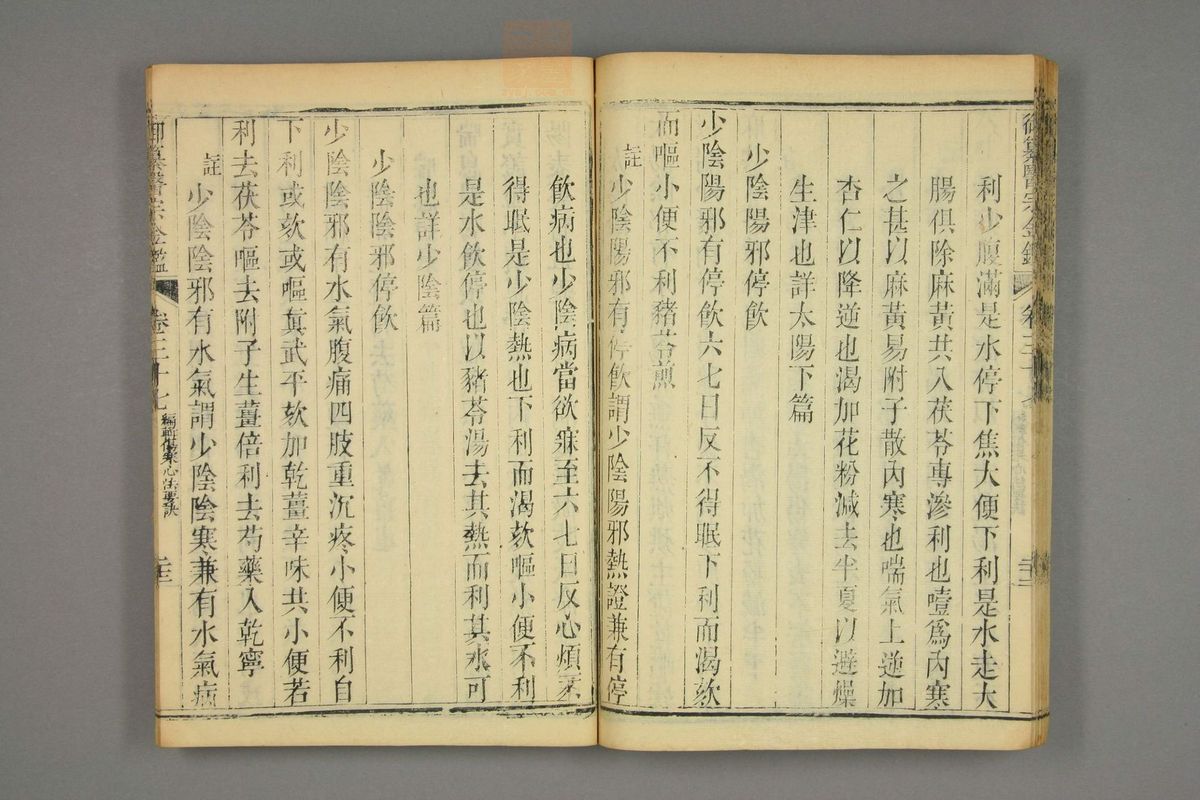 利少腹滿是水停下焦大便下利是水走大
腸俱除麻黃共入茯苓專滲利也噎爲內寒
之甚以麻黃易附子散內寒也喘氣上逆加
杏仁以降逆也渴加花粉減去半夏以避燥
生津也詳太陽下篇
少陰陽邪停飲
少陰陽邪有停飲六七日反不得眠下利而渴欬
而嘔小便不利豬苓煎
註少陰陽邪有停飲謂少陰陽邪熱證兼有停
飲病也少陰病當欲寐至六七日反心煩不
得眠是少陰熱也下利而渴欬嘔小便不利
是水飲停也以豬苓湯去其熱而利其水可
也詳少陰篇
少陰陰邪停飲
少陰陰邪有水氣腹痛四肢重沉疼小便不利自
下利或欬或嘔眞武平欬加乾薑辛味共小便若
利去茯苓嘔去附子生薑倍利去芍藥入乾寧
註少陰陰邪有水氣謂少陰陰寒兼有水氣病
御纂醫宗金鑑 卷三十七 編輯傷寒心法要訣